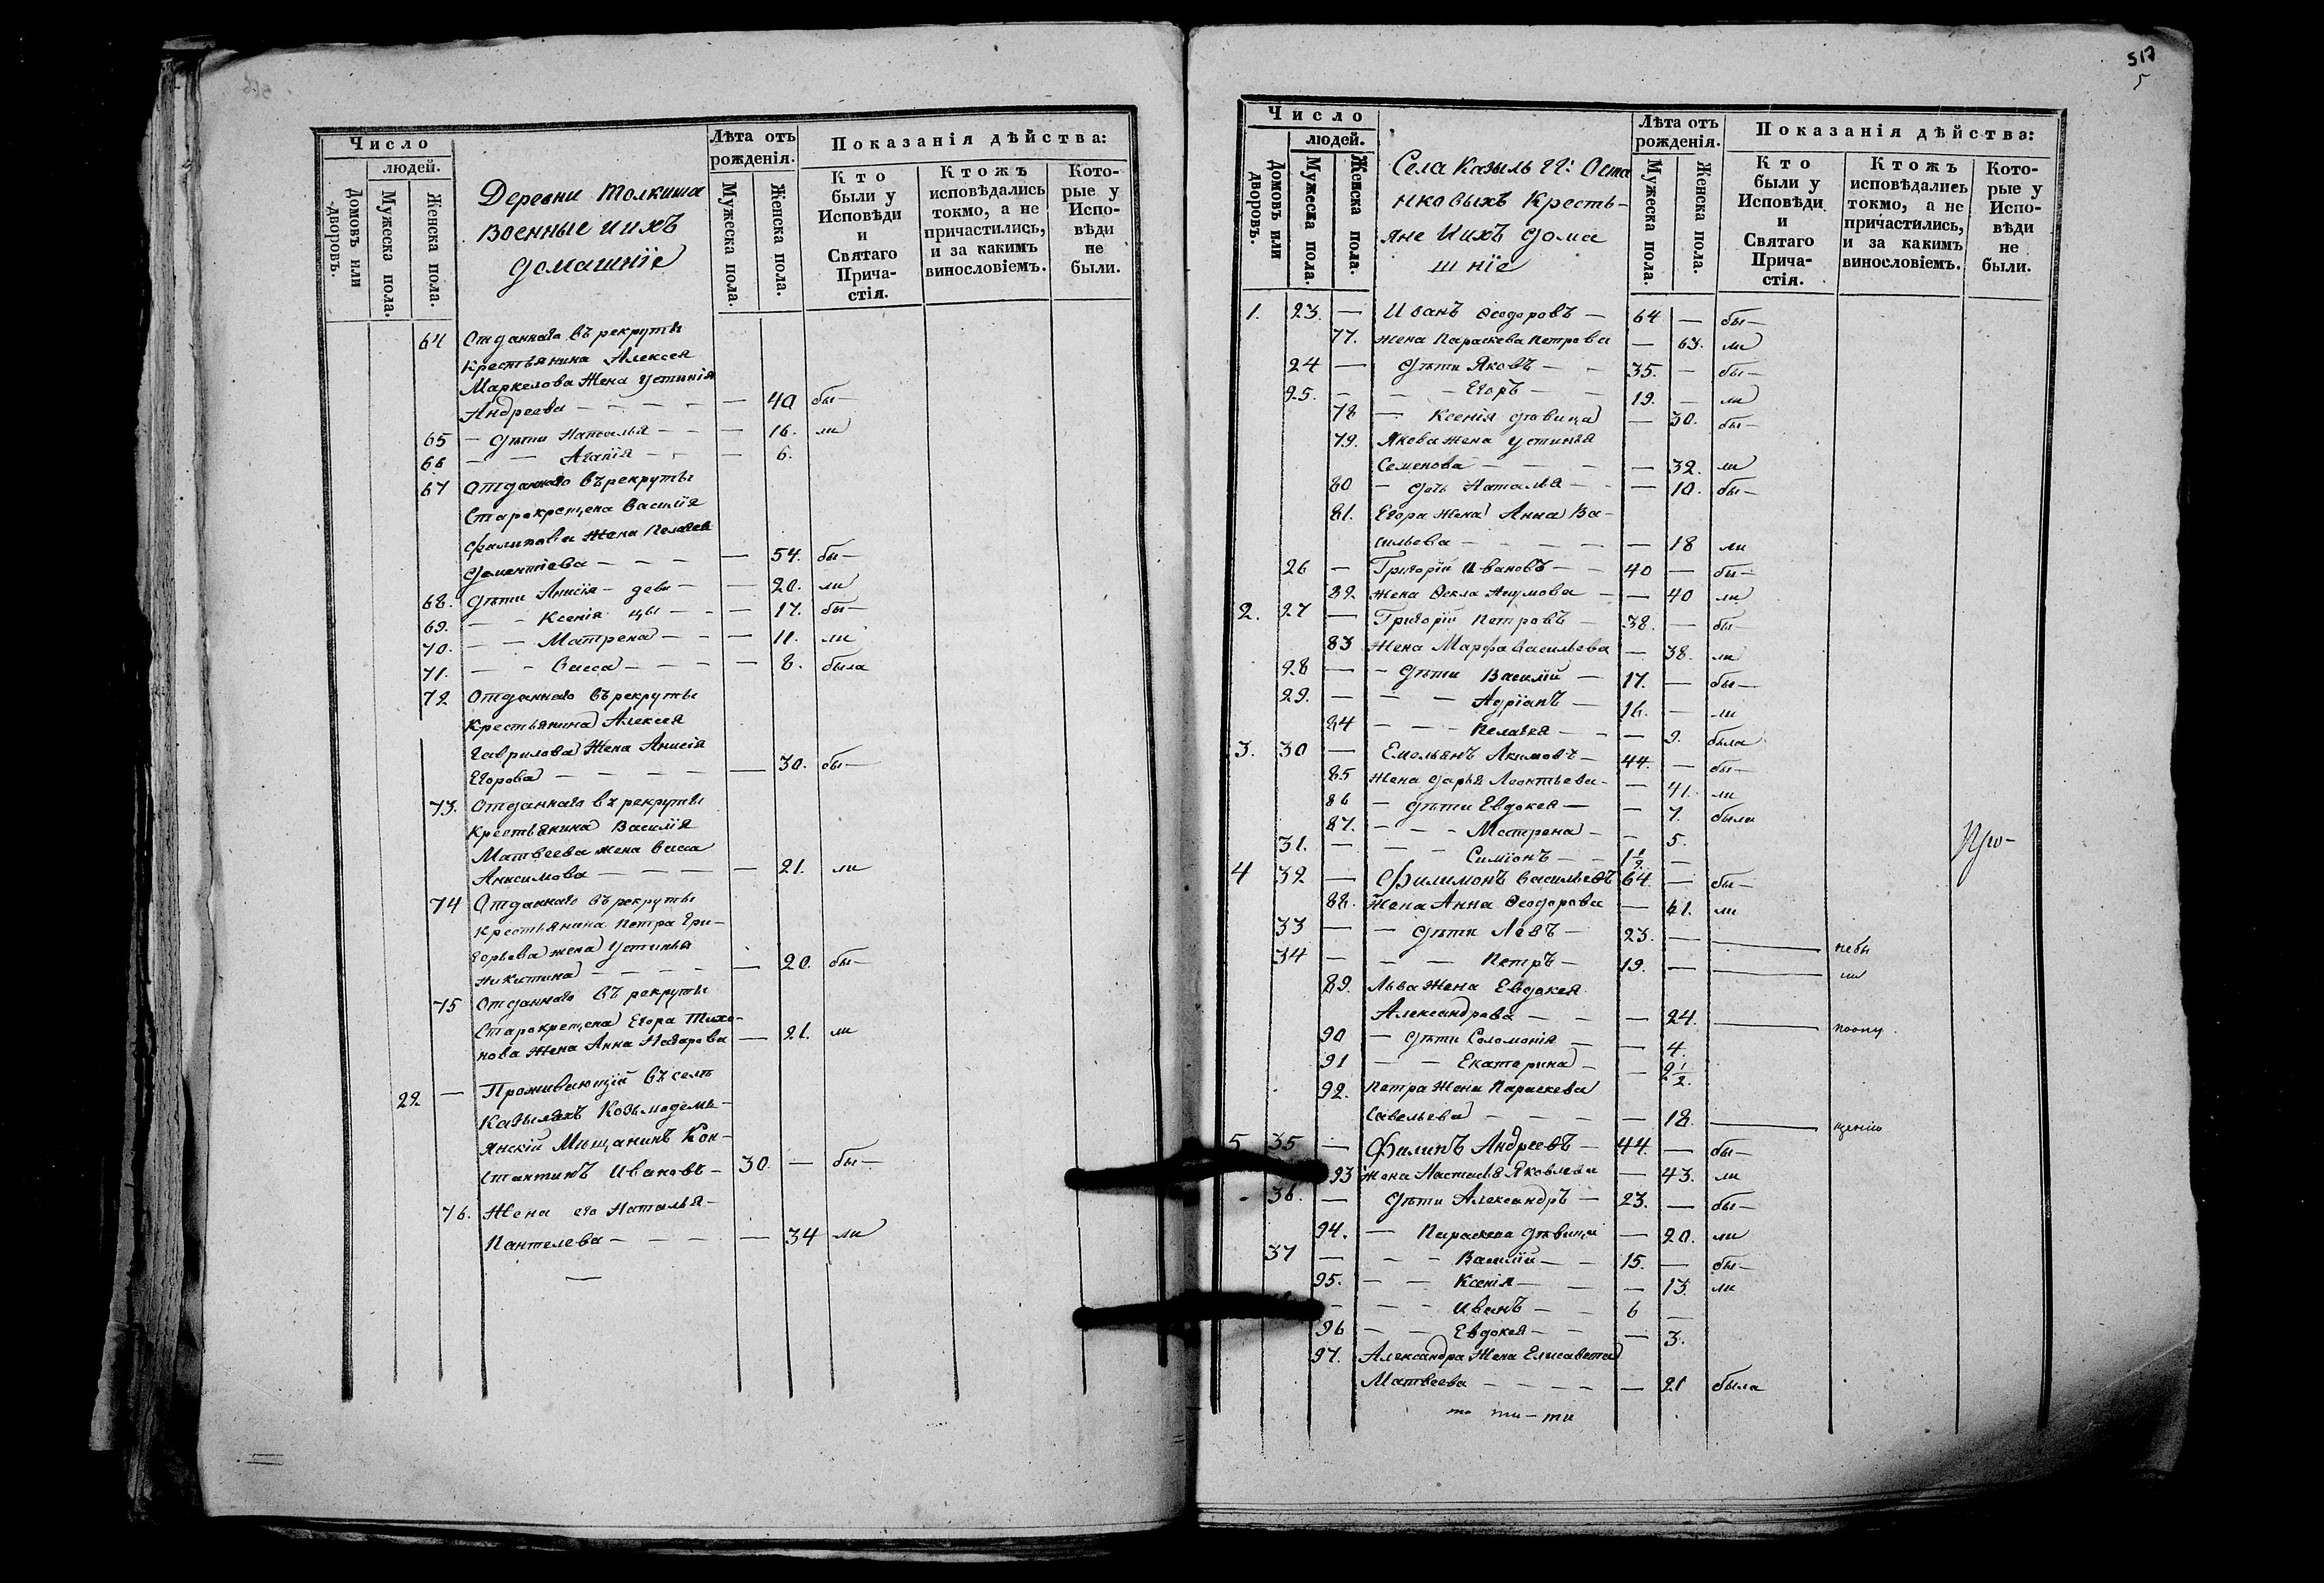 Число
людей.
Домовъ или дворовъ.
Мужеска пола.
Женска пола.
Деревни Толкиша
военные и ихъ
домашніе
Лѣта отъ рожденія.
Мужеска пола.
Женска пола.
Показанія дѣйства:
Кто были у Исповѣди и Святаго Причастія.
Ктожъ исповѣдались токмо, а не причастились, и за какимъ винословіемъ.
Которые у Исповѣди не были.
64 Отданнаго въ рекруты
Крестьянина Алексея
Маркелова Жена Устинія
Андреева — — 40 бы—
65 — дѣти Наталья — — 16. ли
66 — — Агапія — — 6.
67 Отданнаго въ рекруты
Старокрещена Василія
Филипова Жена Пелагея
Дементіева — — — 54. бы—
68. дѣти Анисія — деви — 20. ли
69. — — Ксенія цы — — 17. бы—
70. — — Матрена — — 11. ли
71. — — Васса — — — 8. была
72 Отданнаго въ рекруты
Крестьянина Алексея
Гаврилова Жена Анисія
Егорова — — — — 30. бы—
73. Отданнаго въ рекруты
Крестьянина Василія
Матвеева жена Васса
Анисимова — — — — 21. ли
74 Отданнаго въ рекруты
Крестьянина Петра Гри-
горьева жена Устинья
Никитина — — — — 20. бы—
75 Отданнаго въ рекруты
Старокрещена Егора Тихо-
нова Жена Анна Назарова — 21. ли
22 — Проживающій въ селѣ
Казыляхъ Козьмодемь-
янскій Мищанинъ Кон-
стантинъ Ивановъ — 30. — бы—
76. Жена его Наталья —
Пантелева — — — — 34 ли
—
517
5
Число
людей.
Домовъ или дворовъ.
Мужеска пола.
Женска пола.
Села Казыль
нковыхъ Кресть-
яне И ихъ дома
шніе
Лѣта отъ рожденія.
Мужеска пола.
Женска пола.
Показанія дѣйства:
Кто были у Исповѣди и Святаго Причастія.
Ктожъ исповѣдались токмо, а не причастились, и за какимъ винословіемъ.
Которые у Исповѣди не были.
1. 23. — Иванъ Ѳеодоровъ — 64 — бы—
77. Жена Параскева Петрова — 63. ли
24 — дѣти Яковъ — — 35. — бы—
25. — — Егоръ — — 19. — ли
78 — Ксенія дѣвица — 30. бы—
79. Якова жена Устинья
Семенова — — — — 32. ли
80 — дочь Наталья — — 10. бы—
81. Егора Жена Анна Ва-
сильева — — — — 18 ли
26 — Григорій Ивановъ — — 40 — бы—
82 Жена Ѳекла Наумова — — 40 ли
2. 27 — Григорій Петровъ — 38. — бы—
83 Жена Марфа Васильева — 38. ли
28 — — дѣти Василій — 17. — бы—
29. — — — Адріанъ — 16. — ли
84 — — Пелагея — — — 9. была
3. 30 — Емельянъ Акимовъ — 44. — бы—
85 Жена Дарья Леонтьева — — 41. ли
86 — дѣти Евдокея — — 7. была
87. — — — Матрена — — 5.
31. — — — Симіонъ — — 1 1/2. — Про-
4 32 — Филимонъ Васильевъ 64. — бы—
88. Жена Анна Ѳеодорова — 61. ли
33 — — дѣти Левъ — 23. — — небы
34 — — — Петръ — 19. — — ли
89. Льва Жена Евдокея
Александрова — — — 24. — поопу
90 — дѣти Соломонія — — 4.
91 — — Екатерина — — 2 1/2.
92. Петра Жена Параскева
Савельева — — — — 18. — щенію
5 35 — Филипъ Андреевъ — 44. — бы—
93 Жена Настасья Яковлева — 43. ли
36. — дѣти Александръ — 23. — бы—
94. — Параскева дѣвица — 20. ли
37 — — — Василій — — 15. — бы—
95. — — Ксенія — — 13. ли
— — — Иванъ — — 6 —
96 — — Евдокея — — — 3.
97. Александра Жена Елисавета
Матвеева — — — — 21 была